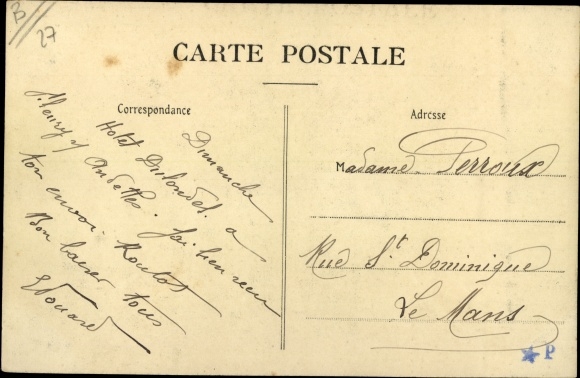 27
CARTE POSTALE
Correspondance
Dimanche
Hotel Dulondel. a
Fleury s/ Andelles. J'ai bien reçu
ton envoi. Routot
Bon baiser tous
Edouard
Adresse
Madame Perroux
Rue St. Dominique
Le Mans
P